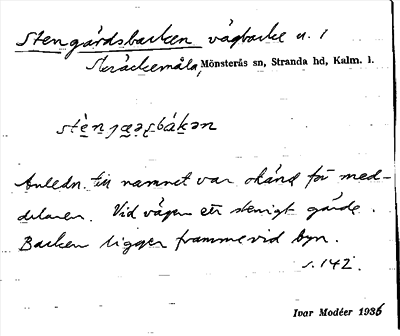 Stengårdsbacken vägbacke n. 1
Skräckemåla, Mönsterås sn, Stranda hd, Kalm. l.
Anledn. till namnet var okänd för med-
delaren. Vid vägen ett stenigt gärde.
Backen ligger framme vid byn.
s. 142.
Ivar Modéer 1936